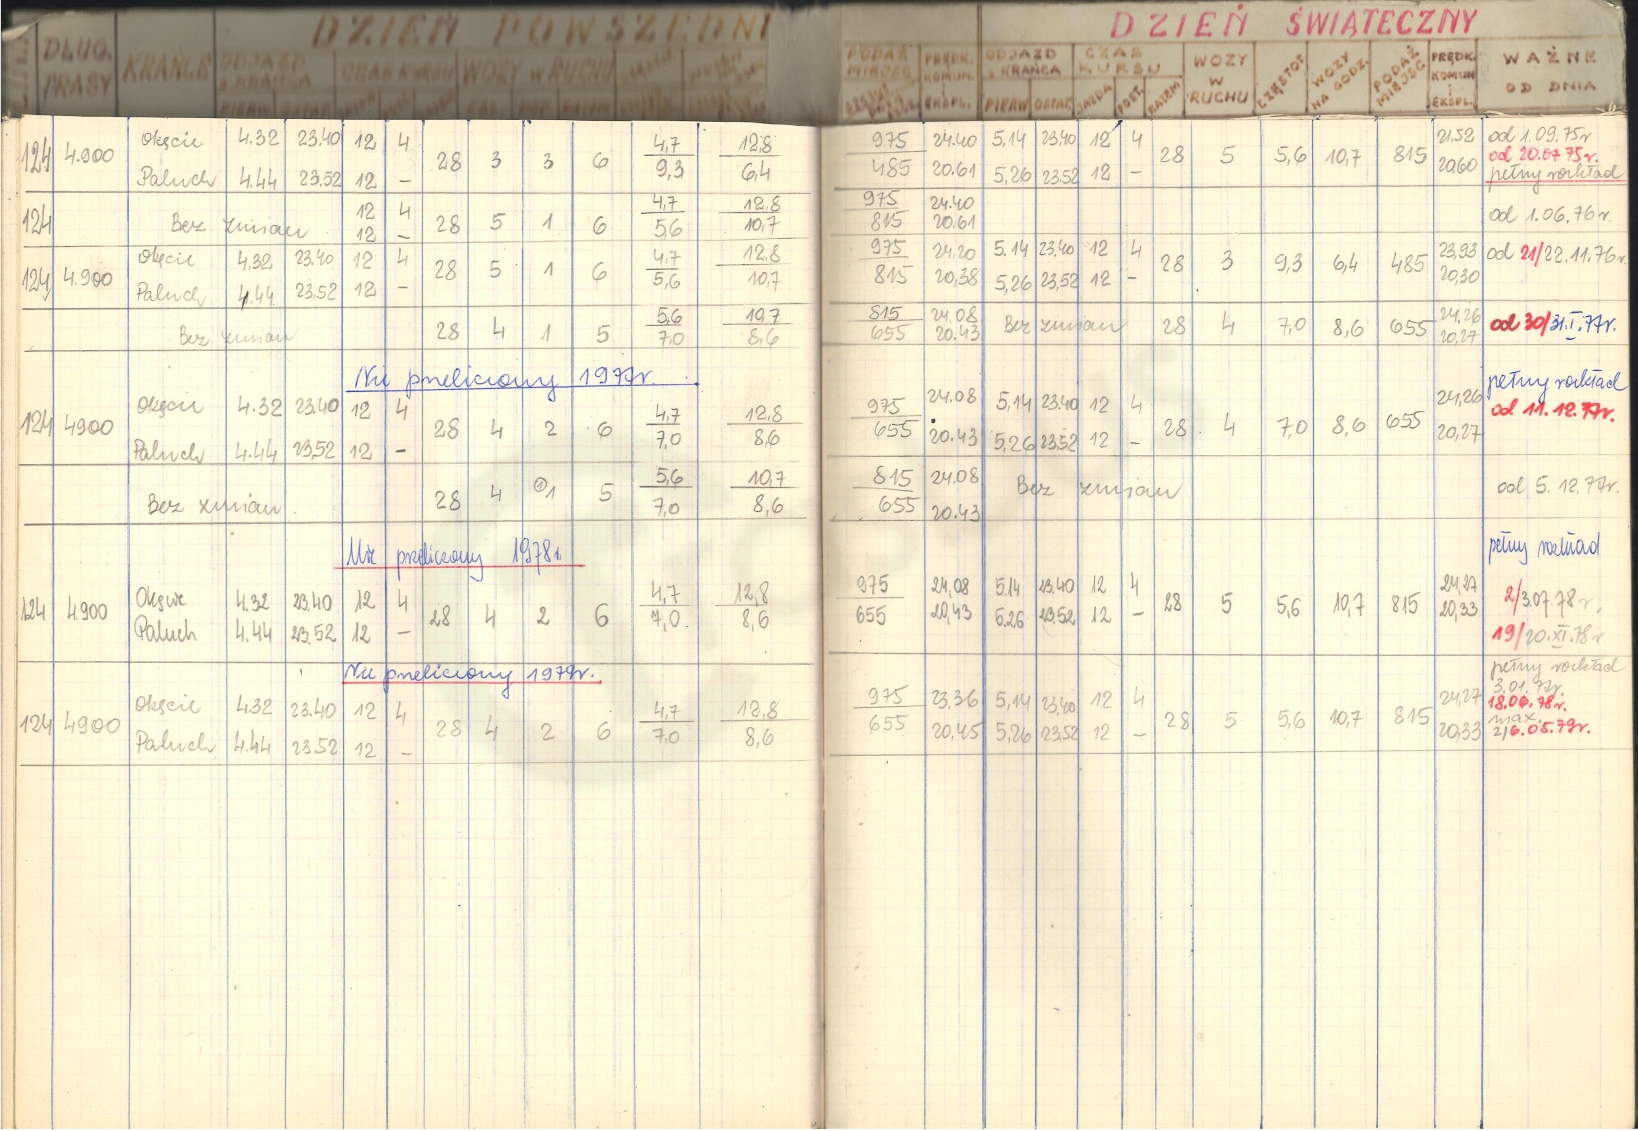 DZIEŃ POWSZEDNI
DZIEŃ ŚWIĄTECZNY
DŁUG. TRASY KRAŃCE ODJAZD Z KRAŃCA CZAS KURSU WOZY W RUCHU
PODAŻ MIEJSC PRĘDK. KOMUN. EKSPL. ODJAZD Z KRAŃCA PIERW OSTAT. CZAS KURSU JAZDA POST. RAZEM WOZY W RUCHU CZĘSTOT WOZY NA GODZ. PODAŻ MIEJSC PRĘDK. KOMUN i EKSPL. WAŻNE OD DNIA
124 4.900 Okęcie 4.32 23.40 12 4 28 3 3 6 4,7 12,8 975 24.40 5,14 23,40 12 4 28 5 5,6 10,7 815 21.52 od 1.09.75r
Paluch 4.44 23.52 12 – 9,3 6,4 485 20.61 5,26 23.52 12 – 20,60 od 20.07 75r.
pełny rozkład
124 Bez zmian 12 4 28 5 1 6 4,7 12.8 975 24.40 od 1.06.76r.
12 – 5,6 10,7 815 20.61
124 4.900 Okęcie 4,32 23,40 12 4 28 5 1 6 4,7 12,8 975 24.20 5.14 23.40 12 4 28 3 9,3 6,4 485 23,93 od 21/22.11.76r.
Paluch 4.44 23,52 12 – 5,6 10,7 815 20,38 5,26 23,52 12 – 20,30
Bez zmian 28 4 1 5 5,6 10,7 815 24.08 Bez zmian 28 4 7,0 8,6 655 24,26 od 30/31.I.77r.
7,0 8,6 655 20.43 20,27
Nie przeliczony 1977r.
pełny rozkład
124 4900 Okęcie 4.32 23.40 12 4 28 4 2 6 4,7 12,8 975 24.08 5,14 23.40 12 4 28 4 7,0 8,6 655 24,26 od 11.12.77r.
Paluch 4.44 23,52 12 – 7,0 8,6 655 20.43 5,26 23,52 12 – 20,27
Bez zmian 28 4 ①1 5 5,6 10,7 815 24.08 Bez zmian od 5.12.77r.
7,0 8,6 655 20.43
Nie przeliczony 1978r.
pełny rozkład
124 4.900 Okęcie 4.32 23.40 12 4 28 4 2 6 4,7 12,8 975 24,08 5.14 23.40 12 4 28 5 5,6 10,7 815 24,27 2/3.07.78r,
Paluch 4.44 23.52 12 – 7,0. 8,6 655 20,43 5.26 23.52 12 – 20,33 19/20.XI.78r
Nie przeliczony 1979r.
pełny rozkład
124 4900 Okęcie 4.32 23.40 12 4 28 4 2 6 4,7 12,8 975 23,36 5,14 23,40 12 4 28 5 5,6 10,7 815 24,27 3.01.79r.
18.06.78r.
Paluch 4.44 23.52 12 – 7,0 8,6 655 20,45 5,26 23,52 12 – 20,33 max.
2/6.05.79r.